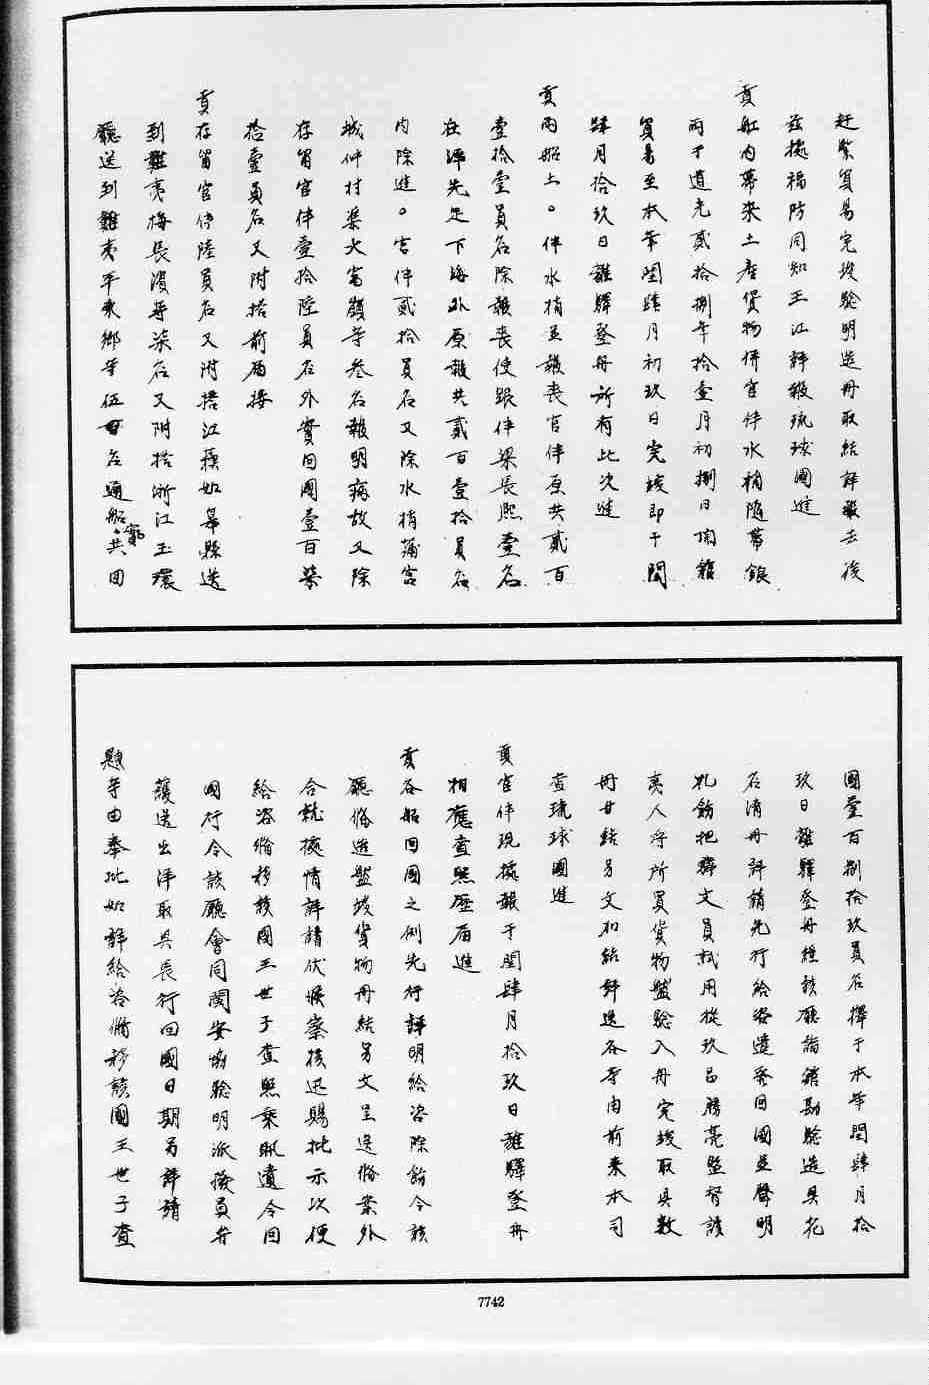 赶緊貿易完竣驗明造冊取結詳報去後
茲據福防同知王江詳報琉球國進
貢船內帶來土產貨物併官伴水梢隨帶銀
兩于道光貳拾捌年拾壹月初捌日開館
貿易至本年閏肆月初玖日完竣即于閏
肆月拾玖日離驛登舟所有此次進
貢兩船上。伴水梢並報喪官伴原共貳百
壹拾壹員名除報喪使跟伴梁長熙壹名
在洋先定下海外原報共貳百壹拾員名
內除進。官伴貳拾員名又除水梢蒲宮
城仲村渠大富嶺等叁名報明病故又除
存留官伴壹拾陸員名外實回國壹百
拾壹員名又附搭前屆接
貢存留官伴陸員名又附搭江蘇如皋縣送
到難夷梅長濱等柒名又附搭浙江玉環
廳送到難夷平東鄉等伍名通船實共回
國壹百捌拾玖員名擇于本年閏肆月拾
玖日離驛登舟經該廳詣館勘驗造具花
名清冊詳請先行給咨遣發回國並聲明
札飭把　文員試用從玖品勝亮監督該
夷人將所買貨物盤驗入冊完竣取具數
冊甘結另文加結詳送各等由前來本司
查琉球國進
貢官伴現據報于閏肆月拾玖日離驛登舟
相應查照歷屆進
貢各船回國之例先行詳明給咨除飭令該
廳俻造盤竣貨物冊結另文呈送俻案外
合就據情詳請伏候察核迅賜批示以便
給咨俻移該國王世子查照來船遣令回
國行令該廳會同閩安協驗明派撥員弁
護送出洋取具長行回國日期另詳請
題等由奉批如詳給咨俻移該國王世子查
7742